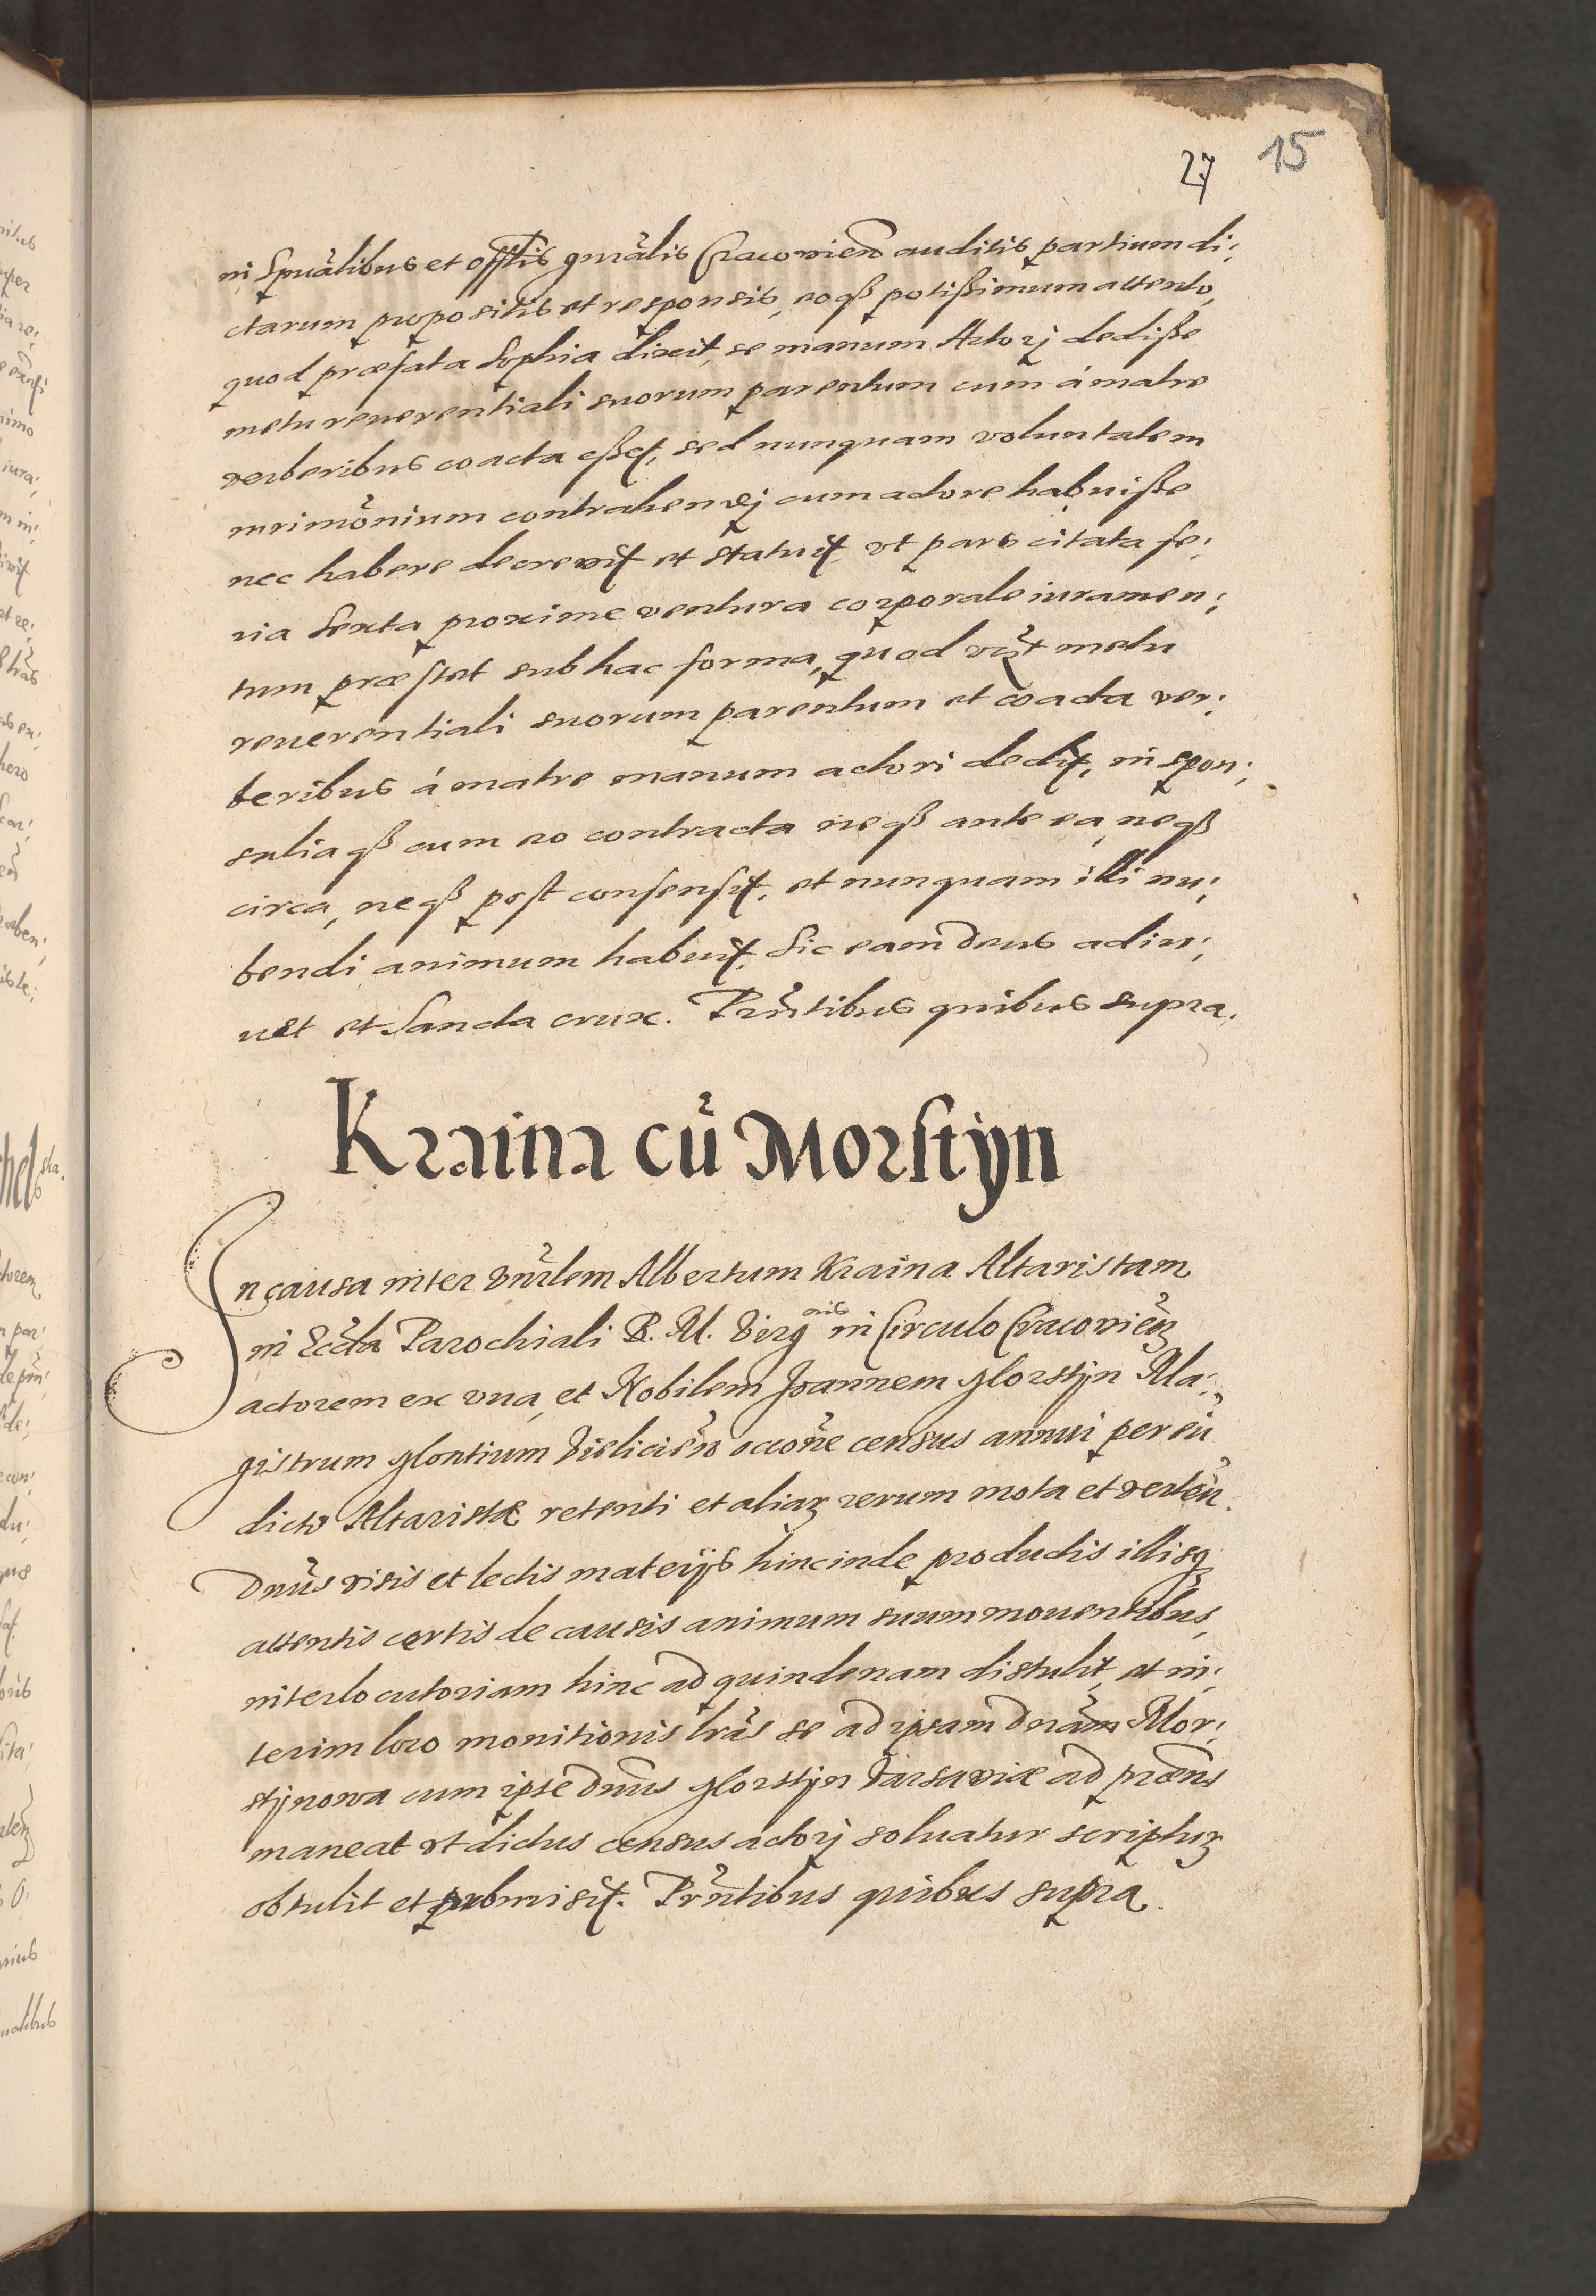 27 15
in Spu̅alibus et offlis gn̅ralis Cracovien̅ auditis partium di:
ctarum propositis et responsis, eoqȝ potißimum attento,
quod præfata Sophia dixit, se manum Actorj dediße
metu reuerentiali suorum parentum cum á matre
verberibus coacta eßet, sed nunquam voluntatem
mrimo̅nium contrahendj cum actore habuiße
nec habere decrevit et statuit, vt pars citata fe:
ria Sexta proxime ventura corporale iuramen:
tum præstet sub hac forma, quod vi̅t metu
reuerentiali suorum parentum et coacta ver:
beribus á matre manum actori dedit, in spon:
saliaqȝ cum eo contracta neqȝ antea, neqȝ
circa, neqȝ post consensit, et nunquam illi nu:
bendi animum habuit, Sic eam deus adiu:
uet et Sancta crux. Prn̅tibus quibus supra.
Kraina cu̅ Morstyn
In causa inter Vnr̅lem Albertum Kraina Altaristam
in Eccl̅a Parochiali B. M. Virg inis in Circulo Cracovien̅
actorem ex vna, et Nobilem Joannem Morstijn Ma:
gistrum Montium Vielicien̅ occo̅ne census annui per eu̅
dicto Altaristæ retenti et aliaꝝ rerum mota et verten̅.
Dnu̅s visis et lectis materijs hincinde productis illisqȝ
attentis certis de causis animum suum mouentibus,
interlocutoriam hinc ad quindenam distulit, et in:
terim loco monitionis lr̅as se ad ipsam dna̅m Mor:
stijnowa cum ipse dnu̅s Morstijn Varsaviæ ad præn̅s
maneat vt dictus census actorj soluatur scripturꝝ
obtulit et submisit. Prn̅tibus quibus supra.